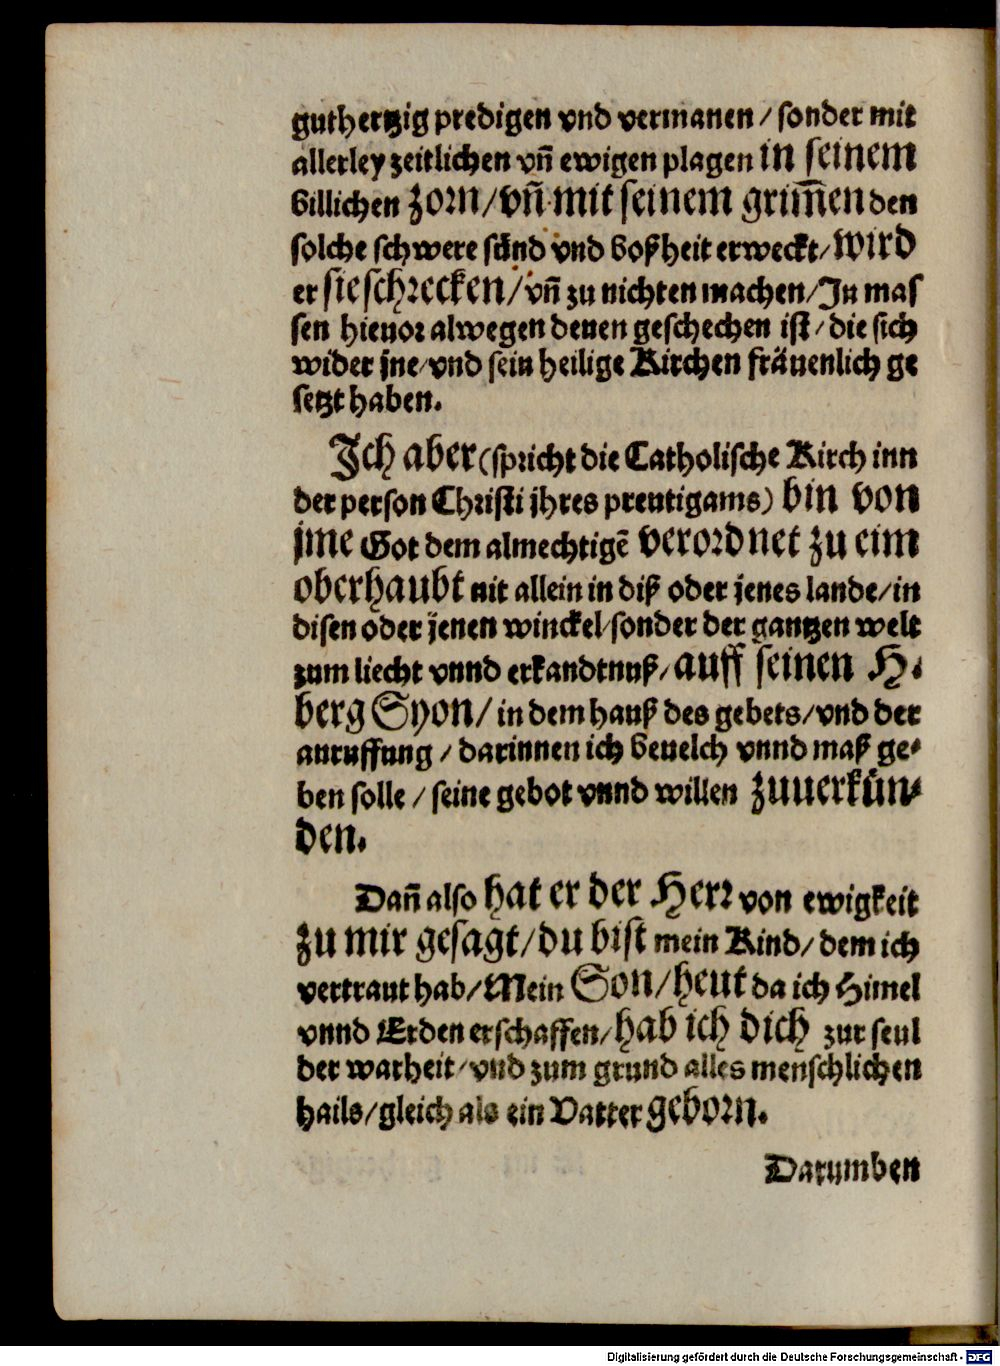 guthertzig predigen vnd vermanen / sonder mit
allerley zeitlichen vñ ewigen plagen in seinem
billichen zorn / vñ mit seinem grim̄en den
solche schwere sünd vnd boßheit erweckt / wird
er sie schrecken / vñ zu nichten machen / In mas
sen hieuor alwegen denen geschechen ist / die sich
wider jne / vnd sein heilige Kirchen fräuenlich ge
setzt haben.
Ich aber (spricht die Catholische Kirch inn
der person Christi jhres preutigams) bin von
jme Got dem almechtigē verordnet zu eim
oberhaubt nit allein in diß oder jenes lande / in
disen oder jenen winckel / sonder der gantzen welt
zum liecht vnnd erkandtnuß / auff seinen H.
berg Syon / in dem hauß des gebets / vnd der
anruffung / darinnen ich beuelch vnnd maß ge⸗
ben solle / seine gebot vnnd willen zuuerkün⸗
den.
Dañ also hat er der Herr von ewigkeit
zu mir gesagt / du bist mein Kind / dem ich
vertraut hab / Mein Son / heut da ich Himel
vnnd Erden erschaffen / hab ich dich zur seul
der warheit / vnd zum grund alles menschlichen
hails / gleich als ein Vatter geborn.
Darumben
Digitalisierung gefördert durch die Deutsche Forschungsgemeinschaft - DFG